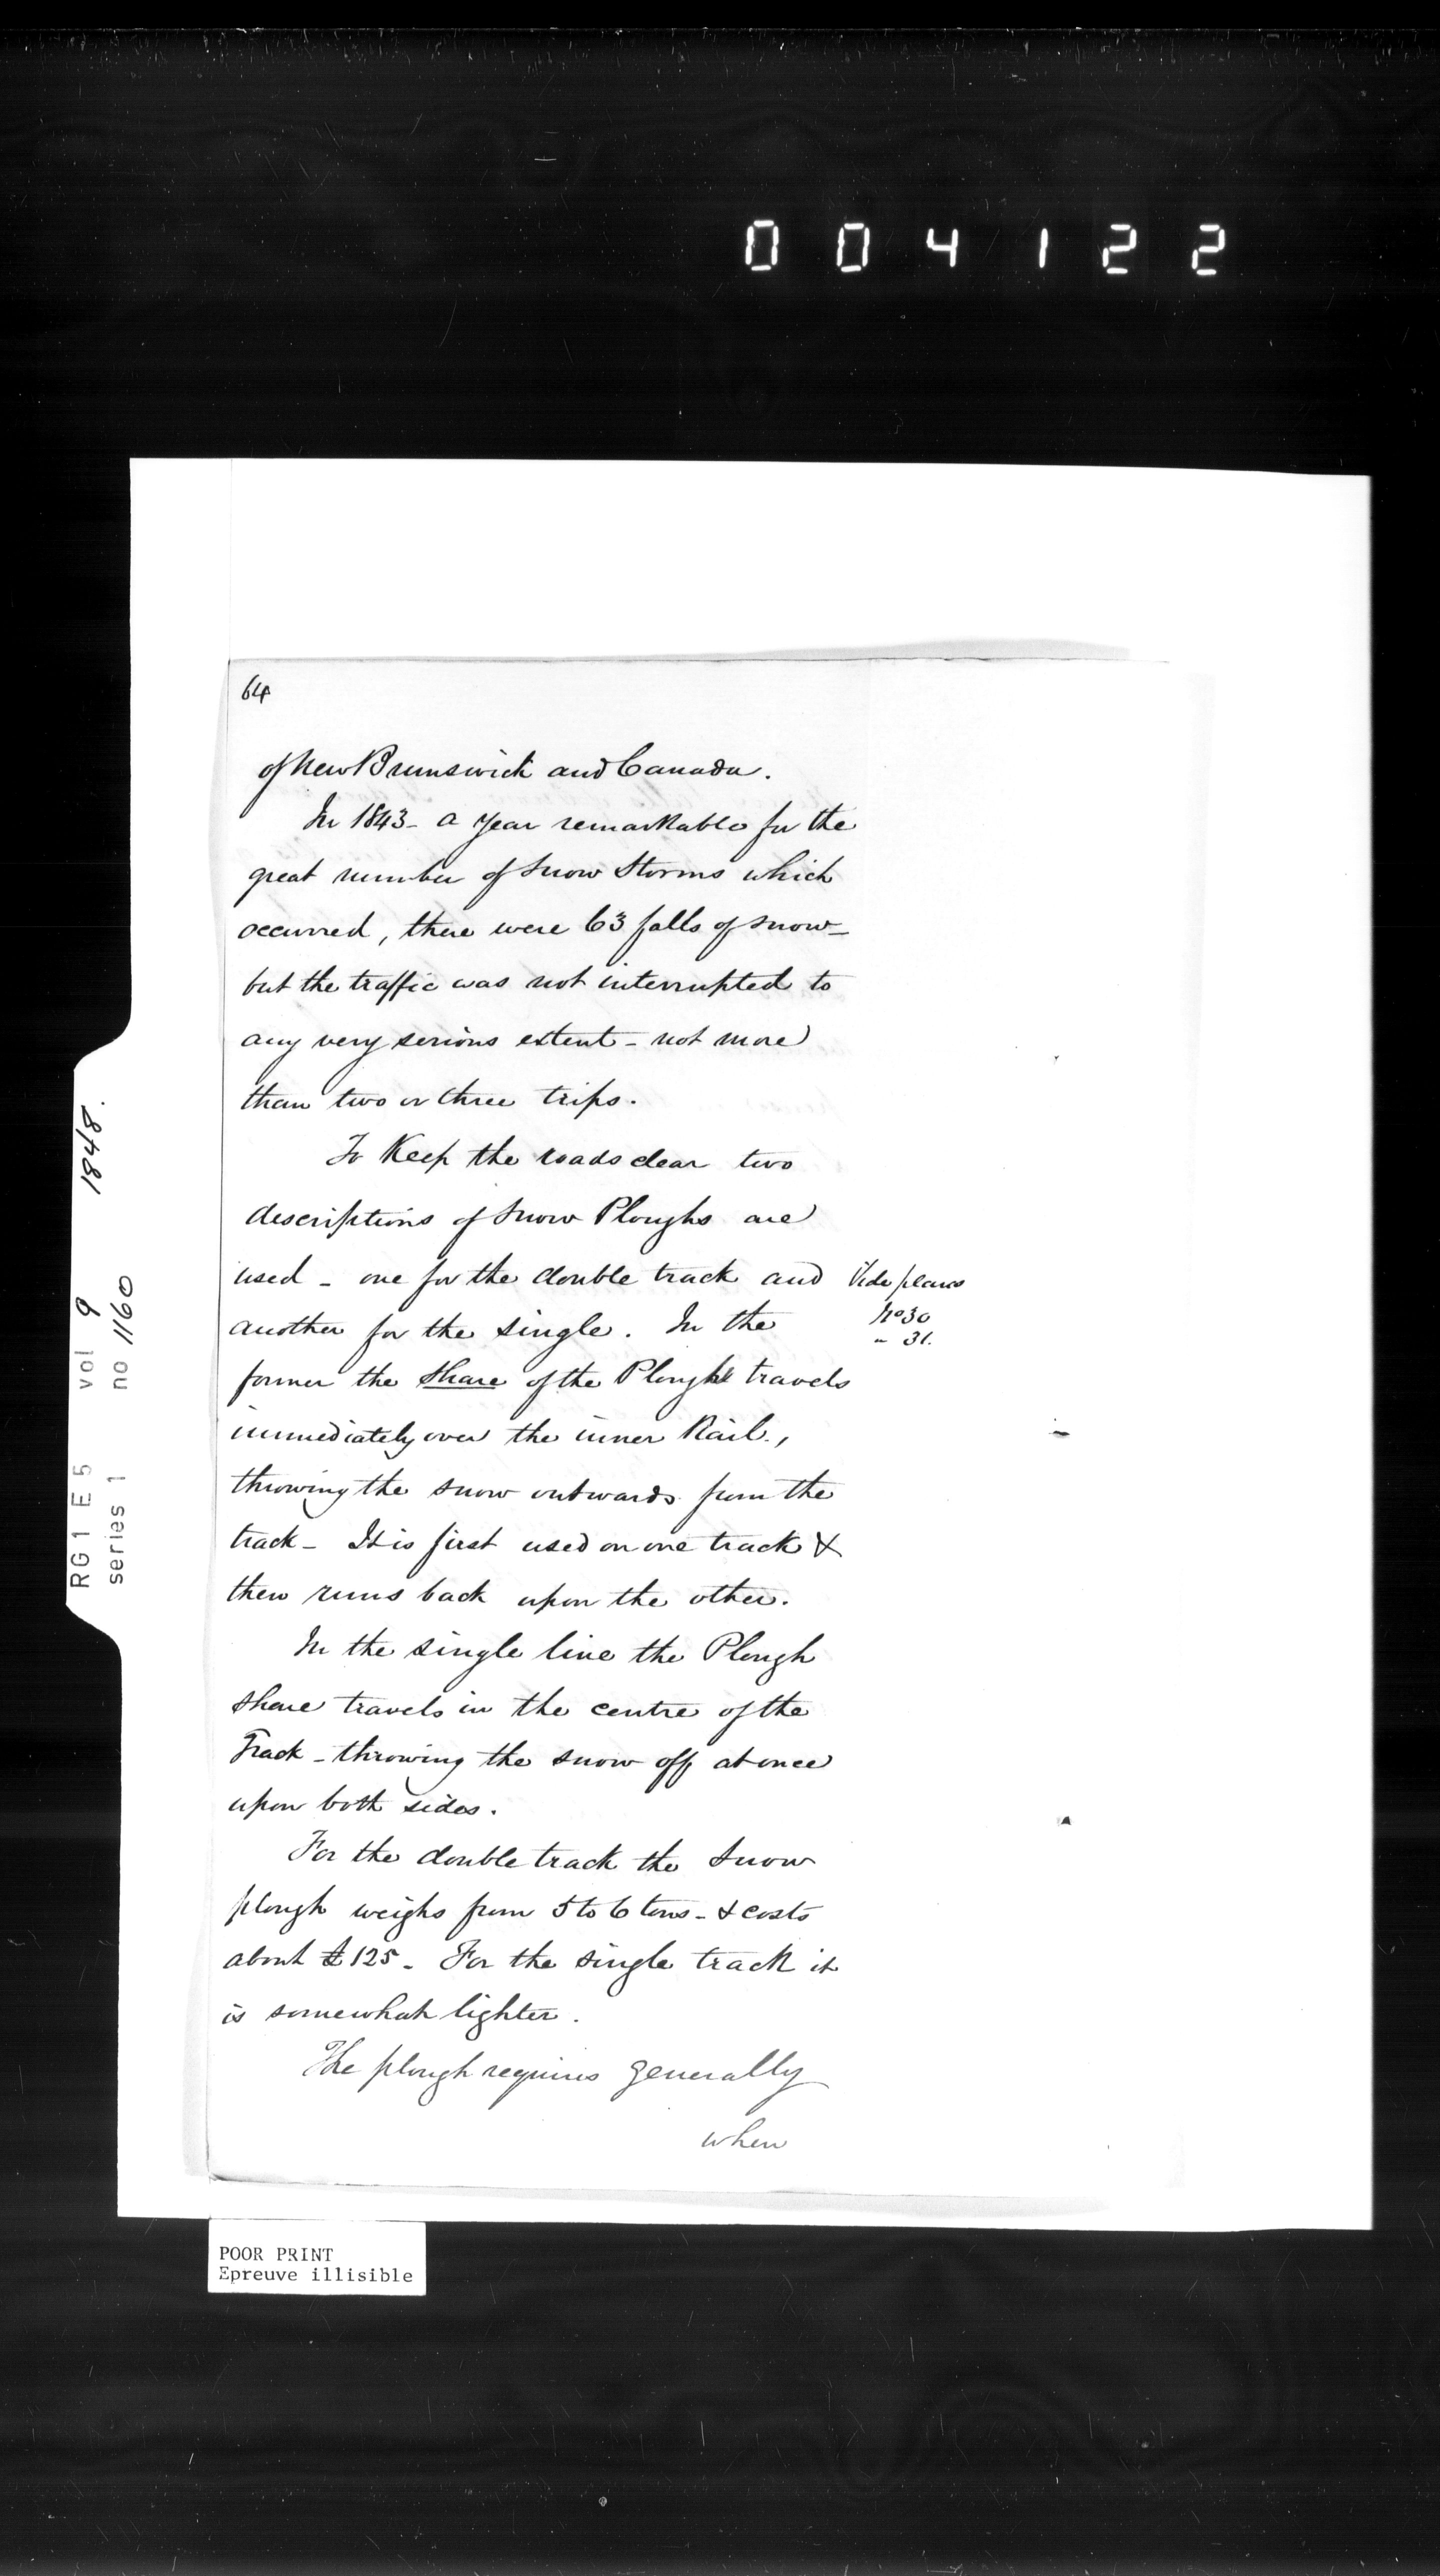 004122
64
of New Brunswick and Canada.
In 1843 - a year remarkable for the
great number of Snow Storms which
occurred, there were 63 falls of snow -
but the traffic was not interrupted to
any very serious extent - not more
than two or three trips.
To Keep the roads clear two
descriptions of Snow Ploughs are
used - one for the double track and
another for the single. In the
former the share of the Plough travels
immediately over the inner Rail,
throwing the snow outwards from the
track - It is first used on one track &
then runs back upon the other.
In the single line the Plough
share travels in the centre of the
Track - throwing the snow off at once
upon both sides.
For the double track the Snow
plough weighs from 5 to 6 tons - & costs
about £125 - For the single track it
is somewhat lighter.
The plough requires generally
when
Vide plans
No 30
" 31.
RG1 E5 vol 9 1848.
series 1 no 1160
POOR PRINT
Epreuve illisible